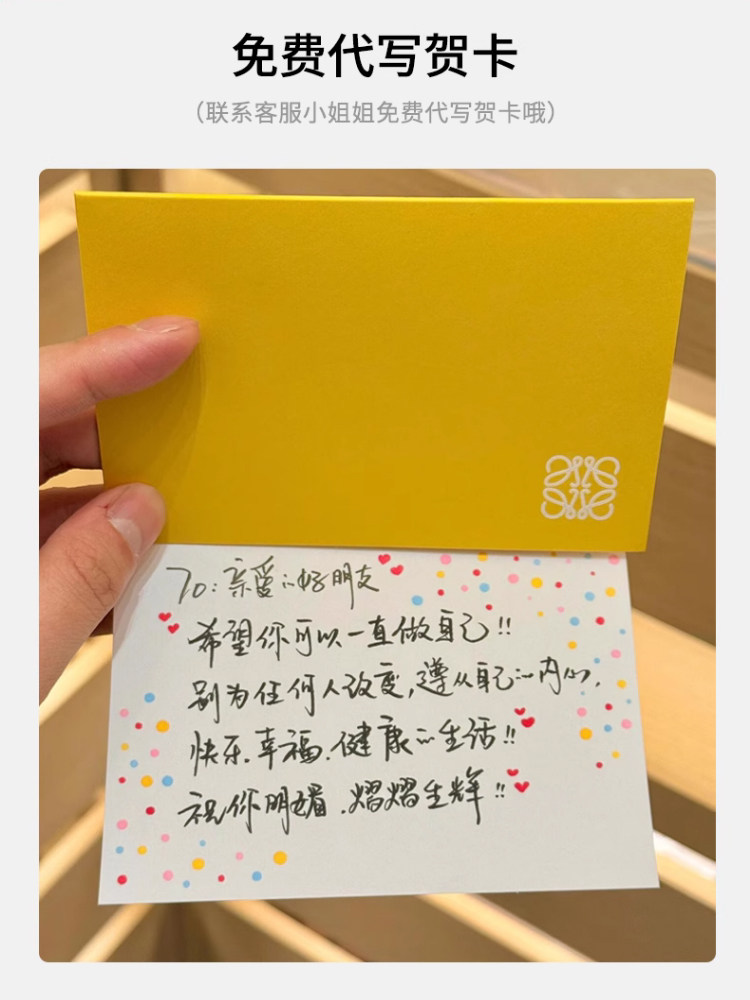 免费代写贺卡
（联系客服小姐姐免费代写贺卡哦）
To：亲爱的好朋友
希望你可以一直做自己!!
别为任何人改变,遵从自己的内心,
快乐.幸福.健康的生活!!
祝你明媚.熠熠生辉!!